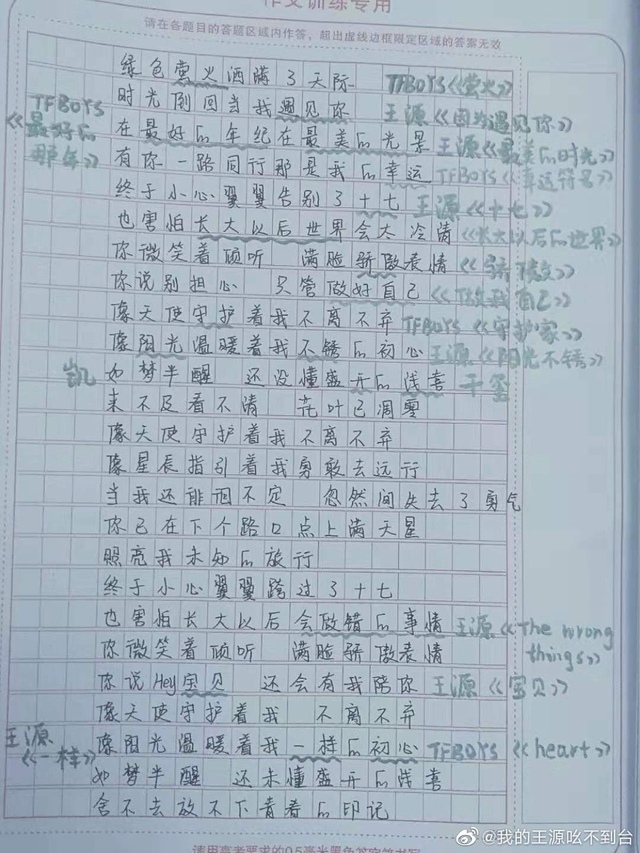 作文训练专用
请在各题目的答题区域内作答，超出虚线边框限定区域的答案无效
绿色萤火洒满了天际 TFBOYS《萤火》
时光倒回当我遇见你 王源《因为遇见你》
TFBOYS《最好的那年》
在最好的年纪在最美的光景 王源《最美的时光》
有你一路同行那是我的幸运 TFBOYS《幸运符号》
终于小心翼翼告别了十七 王源《十七》
也害怕长大以后世界会太冷清《长大以后的世界》
你微笑着倾听 满脸骄傲表情《骄傲》
你说别担心 只管做好自己《做我自己》
像天使守护着我不离不弃 TFBOYS《守护家》
像阳光温暖着我不锈的初心 王源《阳光不锈》
凯 如梦半醒 还没懂盛开的浅喜 千玺
来不及看不清 花叶已凋零
像天使守护着我不离不弃
像星辰指引着我勇敢去远行
当我还徘徊不定 忽然间失去了勇气
你已在下个路口点上满天星
照亮我未知的旅行
终于小心翼翼跨过了十七
也害怕长大以后会做错的事情 王源《The wrong things》
你微笑着倾听 满脸骄傲表情
你说Hey宝贝 还会有我陪你 王源《宝贝》
像天使守护着我 不离不弃
王源《一样》 像阳光温暖着我一样的初心 TFBOYS《heart》
如梦半醒 还未懂盛开的浅喜
舍不去放不下青春的印记
请用高考要求的0.5毫米黑色签字笔书写
@我的王源吆不到台